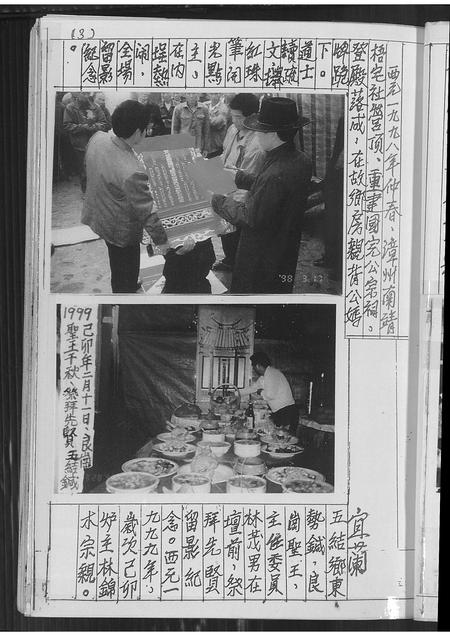 (3)
西元一九九八年仲春、漳州南靖
梧宅社營頂、重建國完公宗祠。
登殿落成，在故鄉房親背公媽
牌跪
下。
道士
讀疏
文讓
紅珠
筆
光點
主。
在內
埕熱
鬧，
全場
留影
紀念
。
'98 3
1999己卯年二月十一日、良崗
聖王千秋、祭拜先賢五結鍼
宜蘭
五結鄉東
勢鍼、良
崗聖王，
主任委員
林茂男在
壇前，祭
拜先賢
留影紀
念。西元一
九九九年，
歲次己卯
炉主林錦
木宗親。